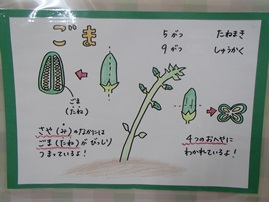 ごま
5がつ　たねまき
9がつ　しゅうかく
ごま
(たね)
さや(み)のなかには
ごま(たね)がびっしり
つまっているよ！
4つのおへやに
わかれているよ！